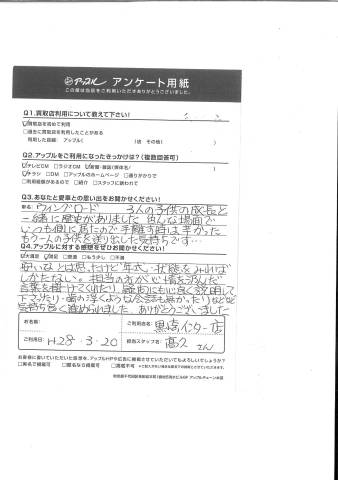 アップル アンケート用紙
この度は当店をご利用いただきありがとうございました。
Q1.買取店利用について教えて下さい!
☑買取店を初めて利用
□過去に買取店を利用したことがある
利用した店舗: アップル( 店 その他: )
Q2.アップルをご利用になったきっかけは?(複数回答可)
□テレビCM □ラジオCM ☑新聞・雑誌(媒体名: )
☑チラシ □DM □アップルのホームページ □通りがかりで
□利用経験があるので □紹介 □スタッフに誘われて
Q3.あなたと愛車との思い出をお聞かせください!
車名: ウィングロード 3人の子供の成長と
一緒に歴史がありました 色んな場面で
いつも側に居たので手離す時は辛かった
もう一人の子供を送り出した気持ちです…
Q4.アップルに対する感想をぜひお聞かせください!
☑大満足 ☑満足 □普通 □もう少し □不満
安いなとは思ったけど年式・状態をみれば
しかたない。担当の方が心情を汲んだ
言葉を掛けてくれたり 質問にも心良く説明して
下さったり 歯の浮くような会話も無かったりなどなど
気持ち良く進められました ありがとうございました
お名前:
ご利用店名: 黒崎インター店
ご利用日: H28・3・20
担当スタッフ名: 髙久 さん
お客様に書いていただいた感想を、アップルHPや広告に掲載させていただいてもよろしいでしょうか?
□実名で掲載可 □匿名なら掲載可